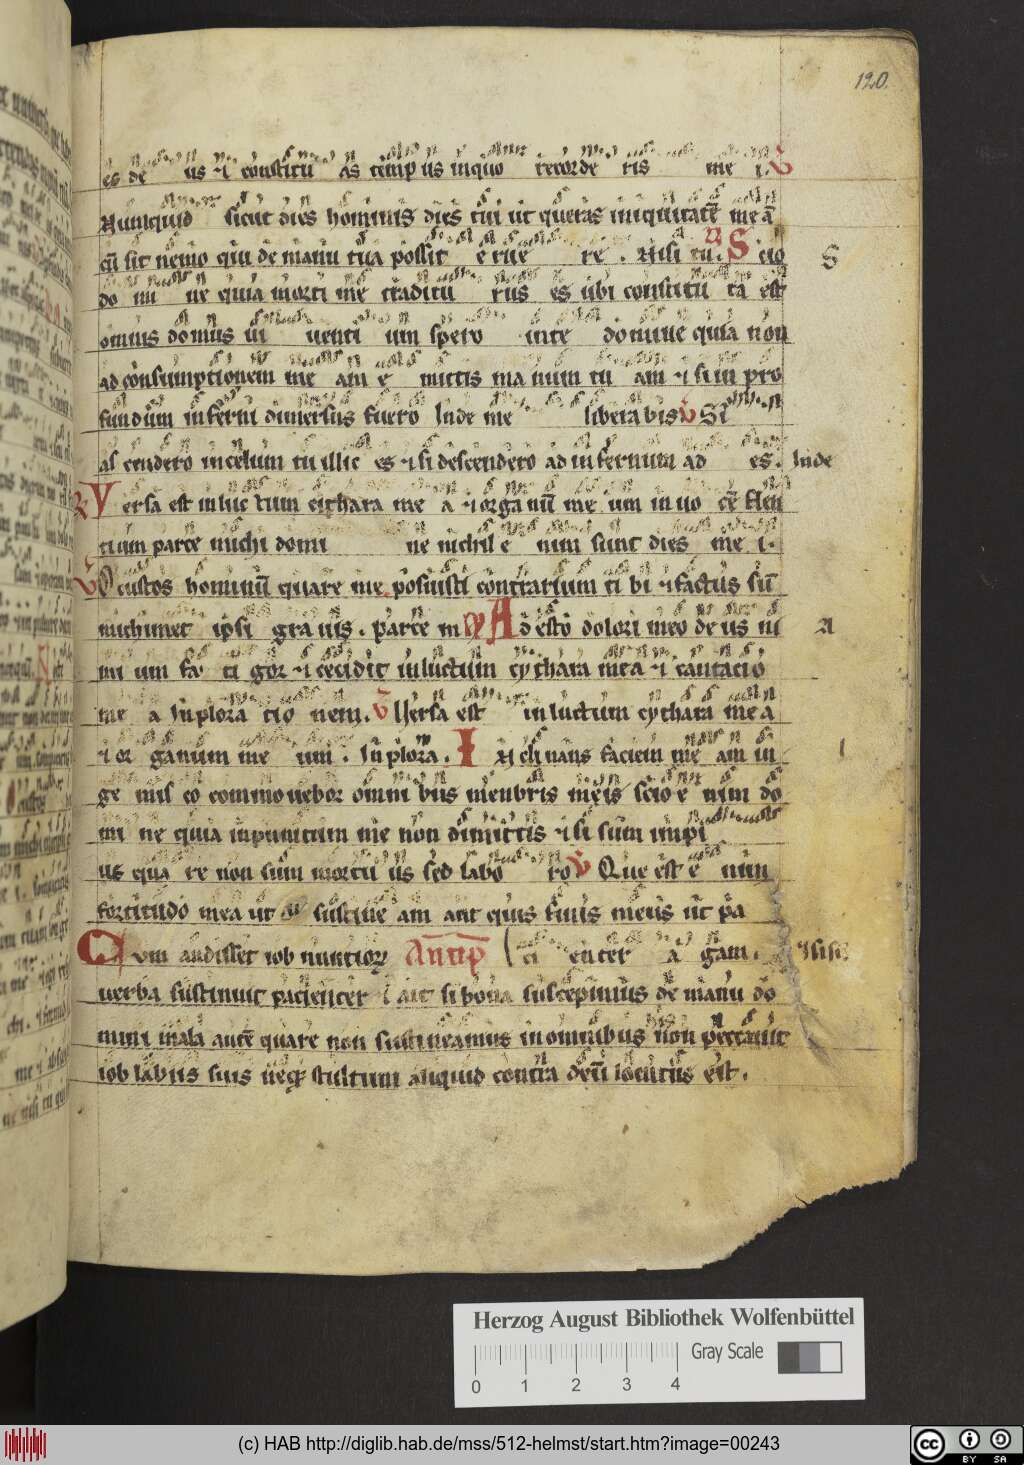 120.
es de us ⁊ constitu as temp us inquo recorde ris me i. V̄
Numquid sicut dies hominis dies tui ut queras iniquitatē me ā
cū sit nemo qui de manu tua possit e rue re. Nisi tu. R̄ Scio S
do mi ne quia morti me traditu rus es ubi constitu ta est
omnis domus ui uenti um spero inte domine quia non
ad consumptionem me am e mittis ma num tu am ⁊ si in pro
fundum inferni dimersus fuero Inde me liberabis V̄ Si
as cendero incelum tu illic es ⁊ si descendero ad infernum ad es. Inde
R̄ Versa est inluc tum cithara me a ⁊ orga nū me um in uo cē flen
tium parce michi domi ne nichil e nim sunt dies me i.
V̄ O custos hominū quare me posuisti contrarium ti bi ⁊ factus sū
michimet ipsi gra uis. parce m R̄ Ad esto dolori meo de us ni A
mi um fa ti gor ⁊ cecidit inluctum cythara mea ⁊ cantacio
me a Inplora cio nem. V̄ Uersa est inluctum cythara mea
⁊ or ganum me um. Inplora. I N cli nans faciem me am in I
ge mis co commouebor omni bus menbris meis scio e nim do
mi ne quia inpunitum me non dimittis ⁊ si sum impi
us qua re non sum mortu us sed labo ro V̄ Que est e nim
fortitudo mea ut sustine am aut quis finis meus ut pa
Cum audisset iob nuntiorꝝ Antip̄ ci enter a gam. Nisi
uerba sustinuit pacienter ⁊ ait si bona suscepimus de manu do
mini mala autē quare non sustineamus in omnibus non peccauit
iob labiis suis neqꝫ stultum aliquid contra deū locutus est.
Herzog August Bibliothek Wolfenbüttel
Gray Scale
0 1 2 3 4
(c) HAB http://diglib.hab.de/mss/512-helmst/start.htm?image=00243
cc BY SA